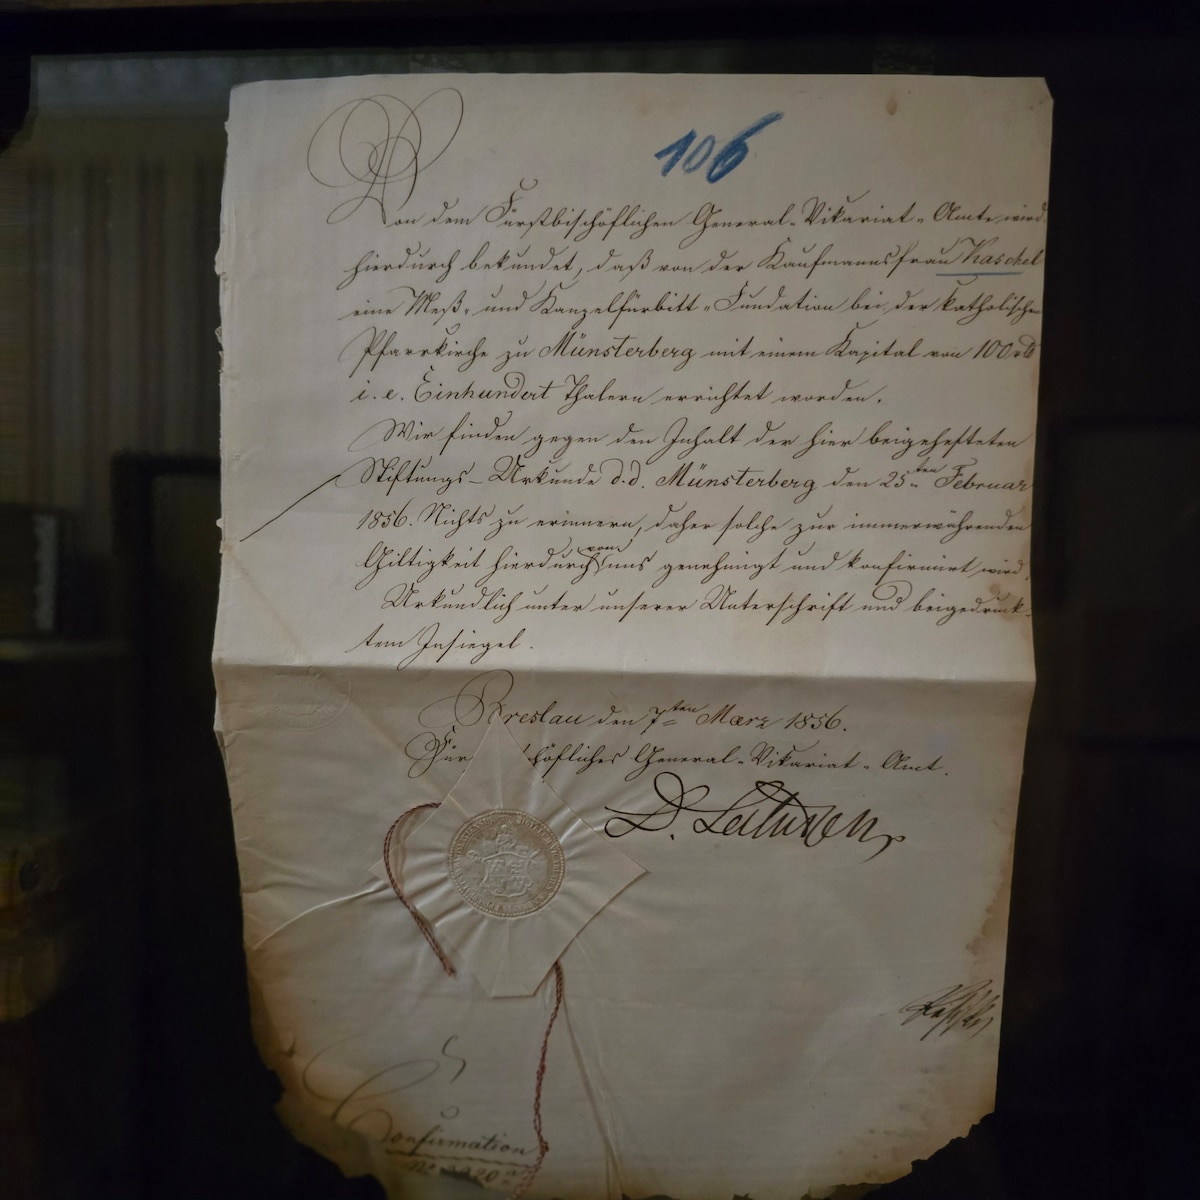 106
Von dem Fürstbischöflichen General-Vikariat-Amte wird
hierdurch bekundet, daß von der Kaufmannsfrau Kaschel
eine Meß- und Kanzelfürbitt-Fundation bei der katholischen
Pfarrkirche zu Münsterberg mit einem Kapital von 100 rtl
i. e. Einhundert Thalern errichtet worden.
Wir finden gegen den Inhalt der hier beigehefteten
Stiftungs-Urkunde d.d. Münsterberg den 25ten Februar
1856. Nichts zu erinnern, daher solche zur immerwährenden
Giltigkeit hierdurch von uns genehmigt und konfirmirt wird.
Urkundlich unter unserer Unterschrift und beigedruck-
tem Insiegel.
Breslau den 7ten Maerz 1856.
Für höfliches General-Vikariat-Amt.
D.
Confirmation